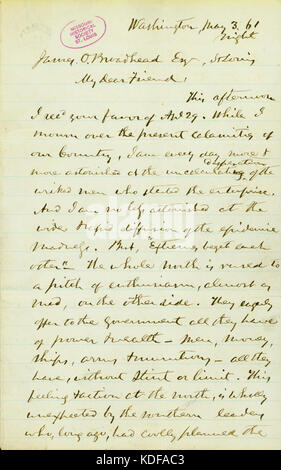 Washington May 3, 61
night
MISSOURI
HISTORICAL
SOCIETY
ST. LOUIS
James O. Broadhead Esq, St Louis
My dear Friend,
This afternoon
I recd your favor of Apl 29. While I
mourn over the present calamities of
our Country, I am every day more &
more astonished at the desperation of the
wicked men who started the enterprise.
And I am not less astonished at the
wide & rapid diffusion of the epidemic
madness. But, "Extremes beget each
other" The whole north is roused to
a pitch of enthusiasm, almost as
mad, on the other side. They eagerly
offer to the Government all they have
of power & wealth – men, money,
ships, arms & munitions – all they
have, without stint or limit. This
feeling & action at the north, is wholly
unexpected by the southern leaders
who, long ago, had coolly planned the
alamy
alamy
Image ID: KDFAC3
www.alamy.com